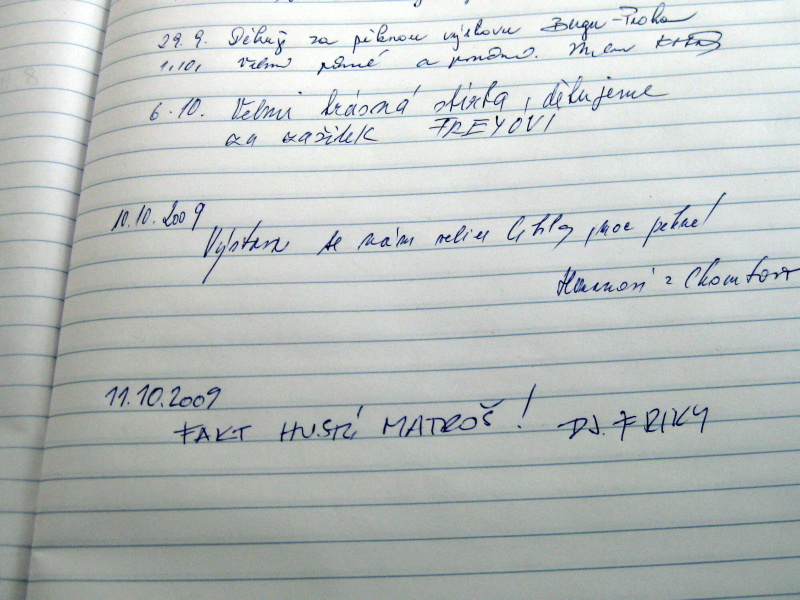 29.9. Děkuji za pěknou výstavu
1.10. Velmi pěkné a
6.10. Velmi krásná sbírka, děkujeme
za zážitek FREYOVI
10.10.2009
Výstava se nám velice líbila, moc pěkné!
z Chomutova
11.10.2009
FAKT HUSTÍ MATROŠ! DJ. FRIKY